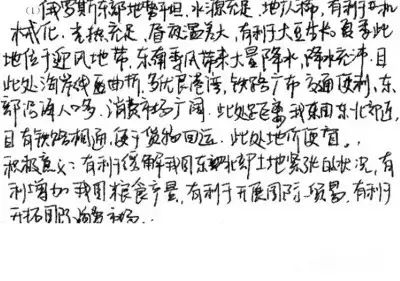 (1) 俄罗斯东部地势平坦,水源充足,地广人稀,有利于机
械化,光热充足,昼夜温差大,有利于大豆生长。夏季此
地位于迎风地带,东南季风带来大量降水,降水充沛。且
此处海岸线曲折,多优良港湾,铁路广布,交通便利,东
部沿海人口多,消费市场广阔。此处距离我国东北部近,
且有铁路相通,便于货物回运。此处地价便宜。
积极意义:有利于缓解我国东北部土地紧张的状况,有
利增加我国粮食产量,有利于开展国际贸易,有利于
开拓国际海外市场。